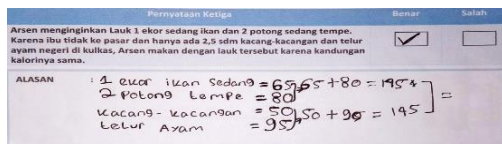 Pernyataan Ketiga Benar Salah
Arsen menginginkan Lauk 1 ekor sedang ikan dan 2 potong sedang tempe.
Karena ibu tidak ke pasar dan hanya ada 2,5 sdm kacang-kacangan dan telur
ayam negeri di kulkas, Arsen makan dengan lauk tersebut karena kandungan
kalorinya sama.
ALASAN : 1 ekor ikan sedang = 65 65 + 80 = 145
2 Potong tempe = 80 =
kacang - kacangan = 50 50 + 95 = 145
telur Ayam = 95